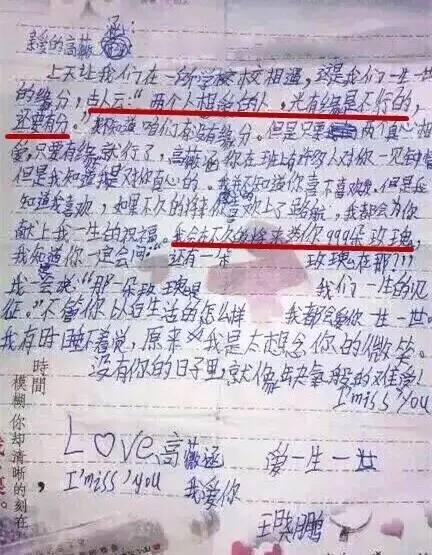 亲爱的高薇函:
上天让我们在一所学校相遇,这是我们一生一世
的缘分,古人云:“两个人相爱的人,光有缘是不行的,
还要有分”。我知道咱们有没有缘分。但是只要两个真心相
爱,只要有缘就行了,高薇函你在班上有许多人对你一见钟情
但是我知道我是对你真心的。我不知道你喜不喜欢但是
知道我喜欢,如果不久的将来你喜欢上了,我都会为你
献上我一生的祝福。我会在不久的将来带你999朵玫瑰,
我知道你一定会问“还有一朵玫瑰在那!!!
我会说:“那一朵玫瑰是我们一生的见
征。”不管你以后生活的怎么样 我都会爱你一生一世。
我有时睡不着觉,原来我是太想念你的微笑。
没有你的日子里,就像缺氧般的难受!
I miss You
Love 高薇函 爱一生一世
I'miss'you 我爱你
王晓鹏
時間,
模糊你却清晰的刻在